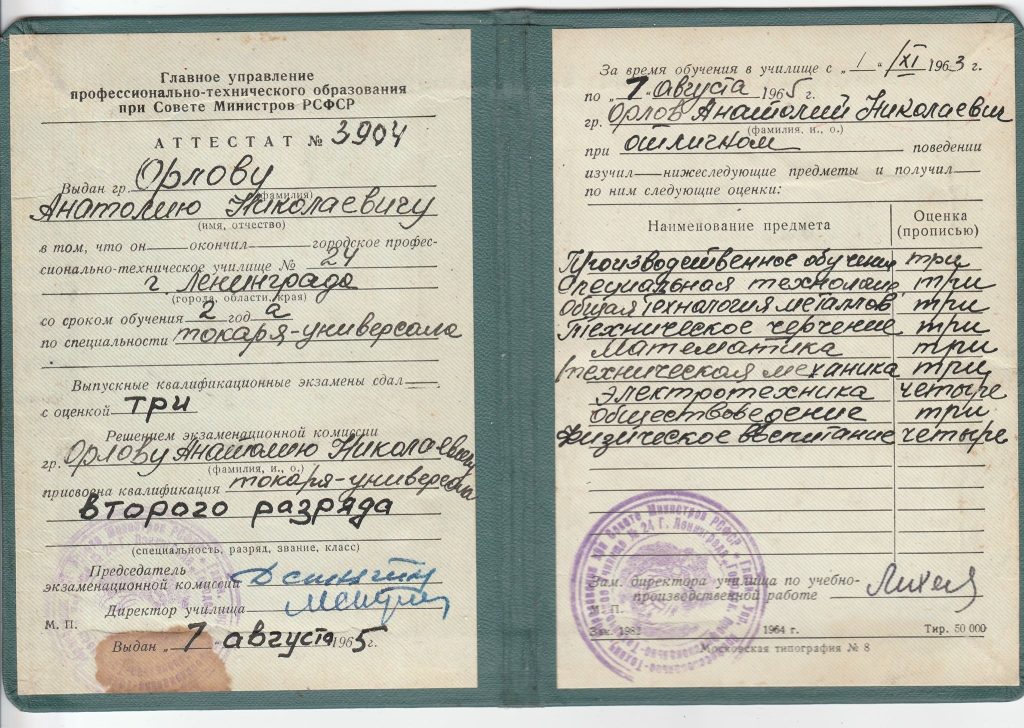 Главное управление
профессионально-технического образования
при Совете Министров РСФСР
АТТЕСТАТ № 3904
Выдан гр. Орлову
(фамилия)
Анатолию Николаевичу
(имя, отчество)
в том, что он окончил городское профес-
сионально-техническое училище № 24
г. Ленинграда
(города, области, края)
со сроком обучения 2 год а
по специальности токаря-универсала
Выпускные квалификационные экзамены сдал
с оценкой три
Решением экзаменационной комиссии
гр. Орлову Анатолию Николаевичу
(фамилия, и., о.)
присвоена квалификация токаря-универсала
второго разряда
(специальность, разряд, звание, класс)
Председатель
экзаменационной комиссии
Директор училища
М. П.
Выдан „1" августа 1965 г.
За время обучения в училище с „1" /XI 1963 г.
по „1" августа 1965 г.
гр. Орлов Анатолий Николаевич
(фамилия, и., о.)
при отличном поведении
изучил нижеследующие предметы и получил
по ним следующие оценки:
Наименование предмета Оценка (прописью)
Производственное обучение три
Специальная технолог. три
Общая технология металлов три
Техническое черчение три
Математика три
Техническая механика три
Электротехника четыре
Обществоведение три
Физическое воспитание четыре
Зам. директора училища по учебно-
производственной работе
М. П.
Зак. 1982 1964 г. Тир. 50 000
Московская типография № 8